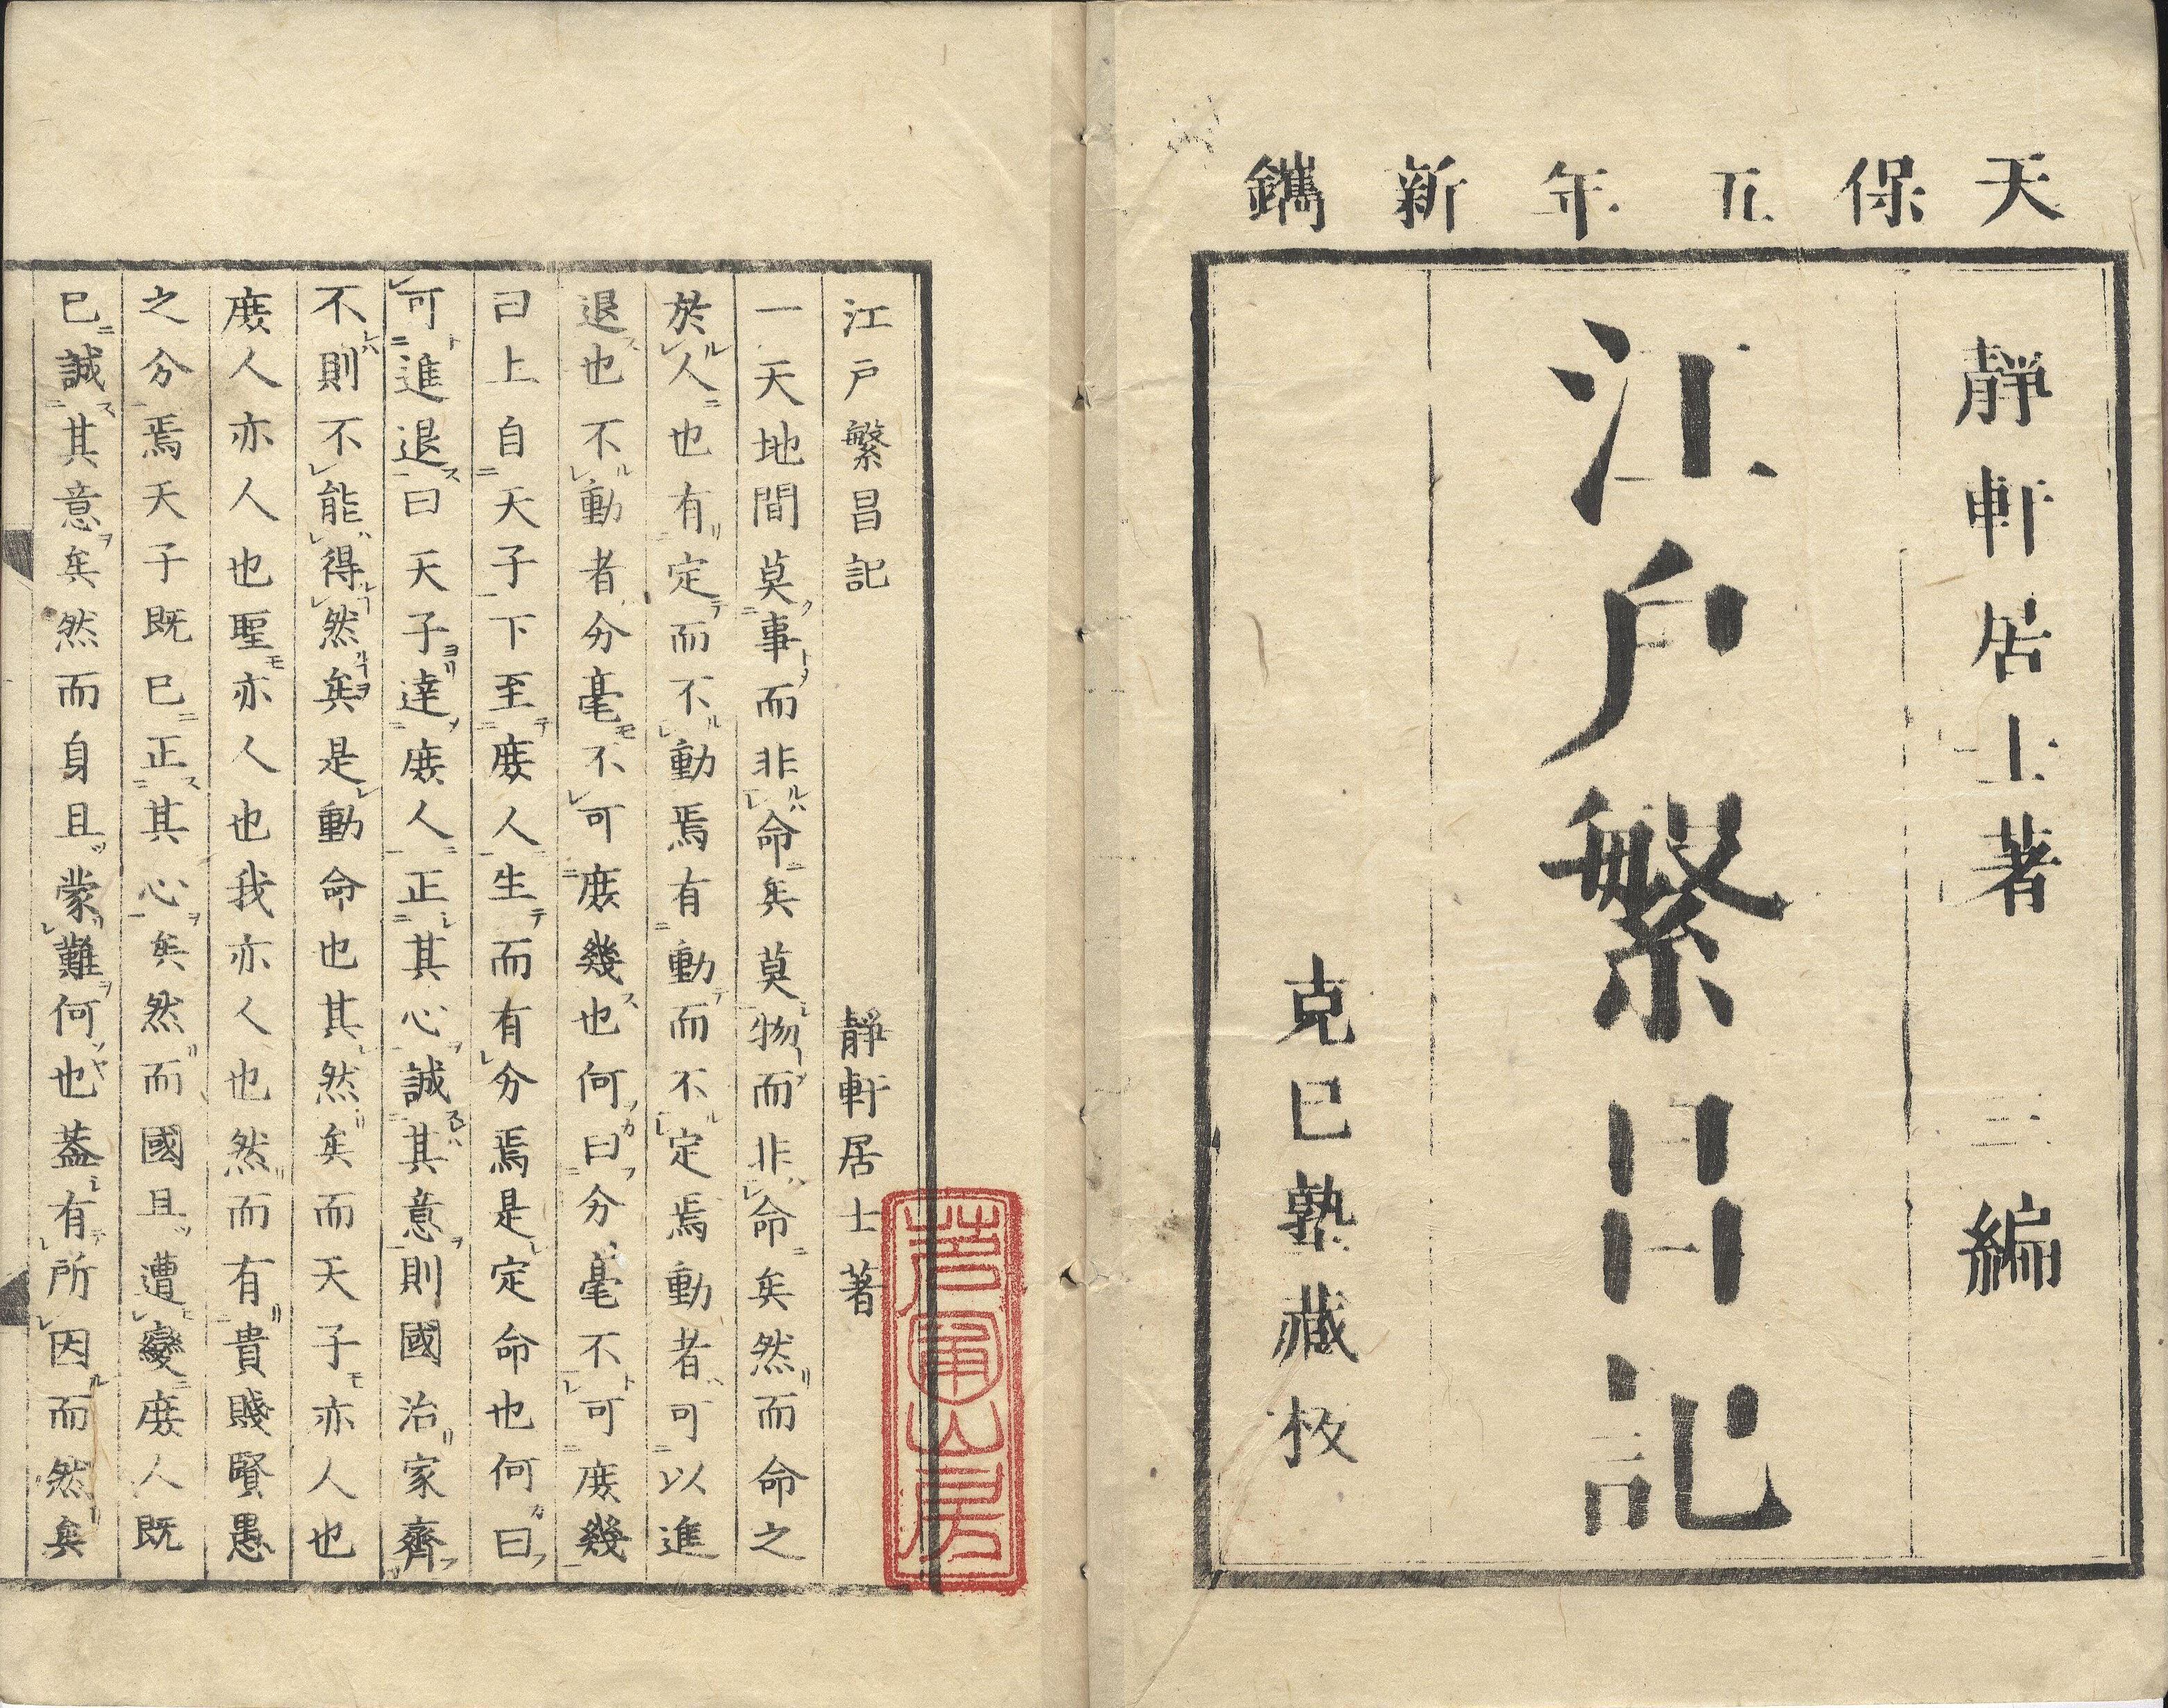 天保五年新鐫
靜軒居士著 三編
江戸繁昌記
克己塾藏板
江戸繁昌記 靜軒居士著
一天地間莫事而非命矣莫物而非命矣然而命之
於人也有定而不動焉有動而不定焉動者可以進
退也不動者分毫不可庶幾也何曰分毫不可庶幾
曰上自天子下至庶人生而有分焉是定命也何曰
可進退曰天子達庶人正其心誠其意則國治家齊
不則不能得然矣是動命也其然矣而天子亦人也
庶人亦人也聖亦人也我亦人也然而有貴賤賢愚
之分焉天子既已正其心矣然而國且遭變庶人既
已誠其意矣然而身且蒙難何也蓋有所因而然矣